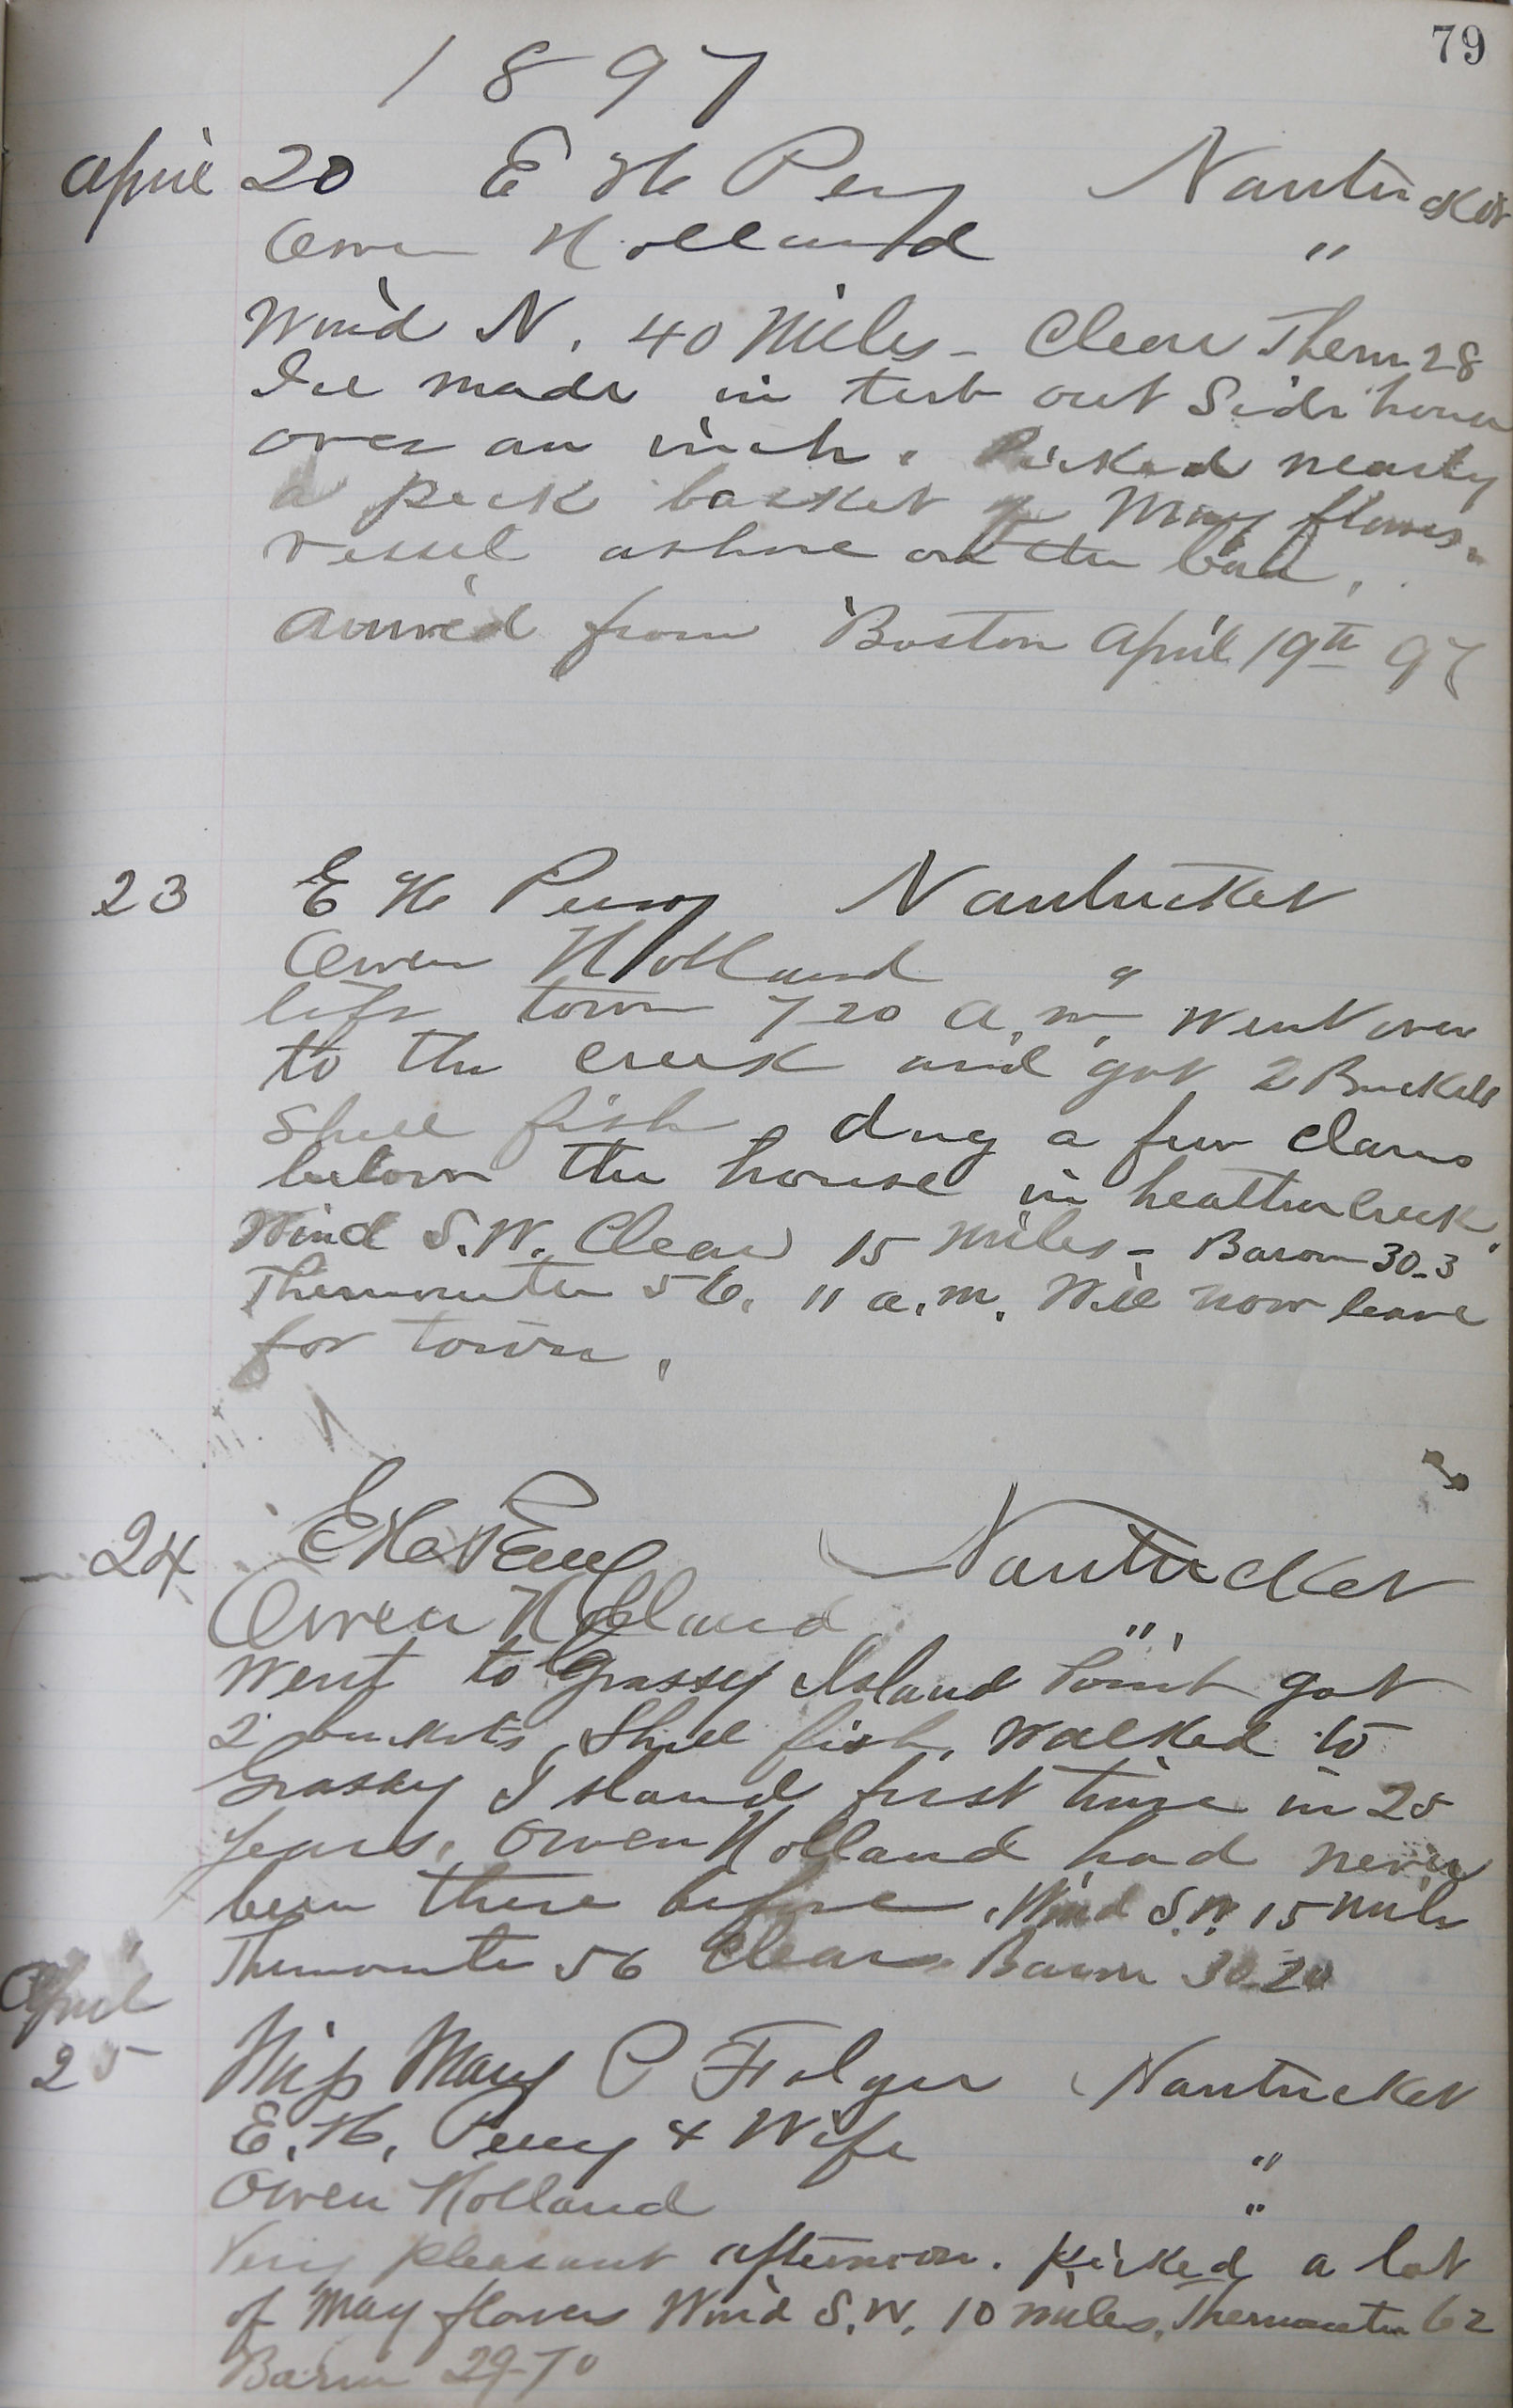 79
1897
April 20 E H Perry Nantucket
Owen Holland "
Wind N. 40 Miles - Clear Therm 28
Ice made in tub out Side house
over an inch. Picked nearly
a peck basket of May flowers.
vessel ashore on the bar.
arrived from Boston April 19th 97
23 E H Perry Nantucket
Owen Holland "
left town 7 20 a.m. Went over
to the creek and got 2 Buckets
Shell fish, dug a few clams
below the house in heather creek.
Wind S.W. Clear 15 miles - Barom 30-3
Thermometer 56. 11 a.m. Will now leave
for town.
24 E H Perry Nantucket
Owen Holland "
Went to Grassy Island Point got
2 buckets Shell fish, walked to
Grassy Island first time in 25
years. Owen Holland had never
been there before. Wind S.W. 15 mils
Thermomter 56 Clear Barom 30-20
April
25 Miss Mary P Folger Nantucket
E. H. Perry & Wife "
Owen Holland "
Very pleasant afternoon. picked a lot
of May flowers Wind S.W. 10 miles. Thermometer 62
Barom 29-70